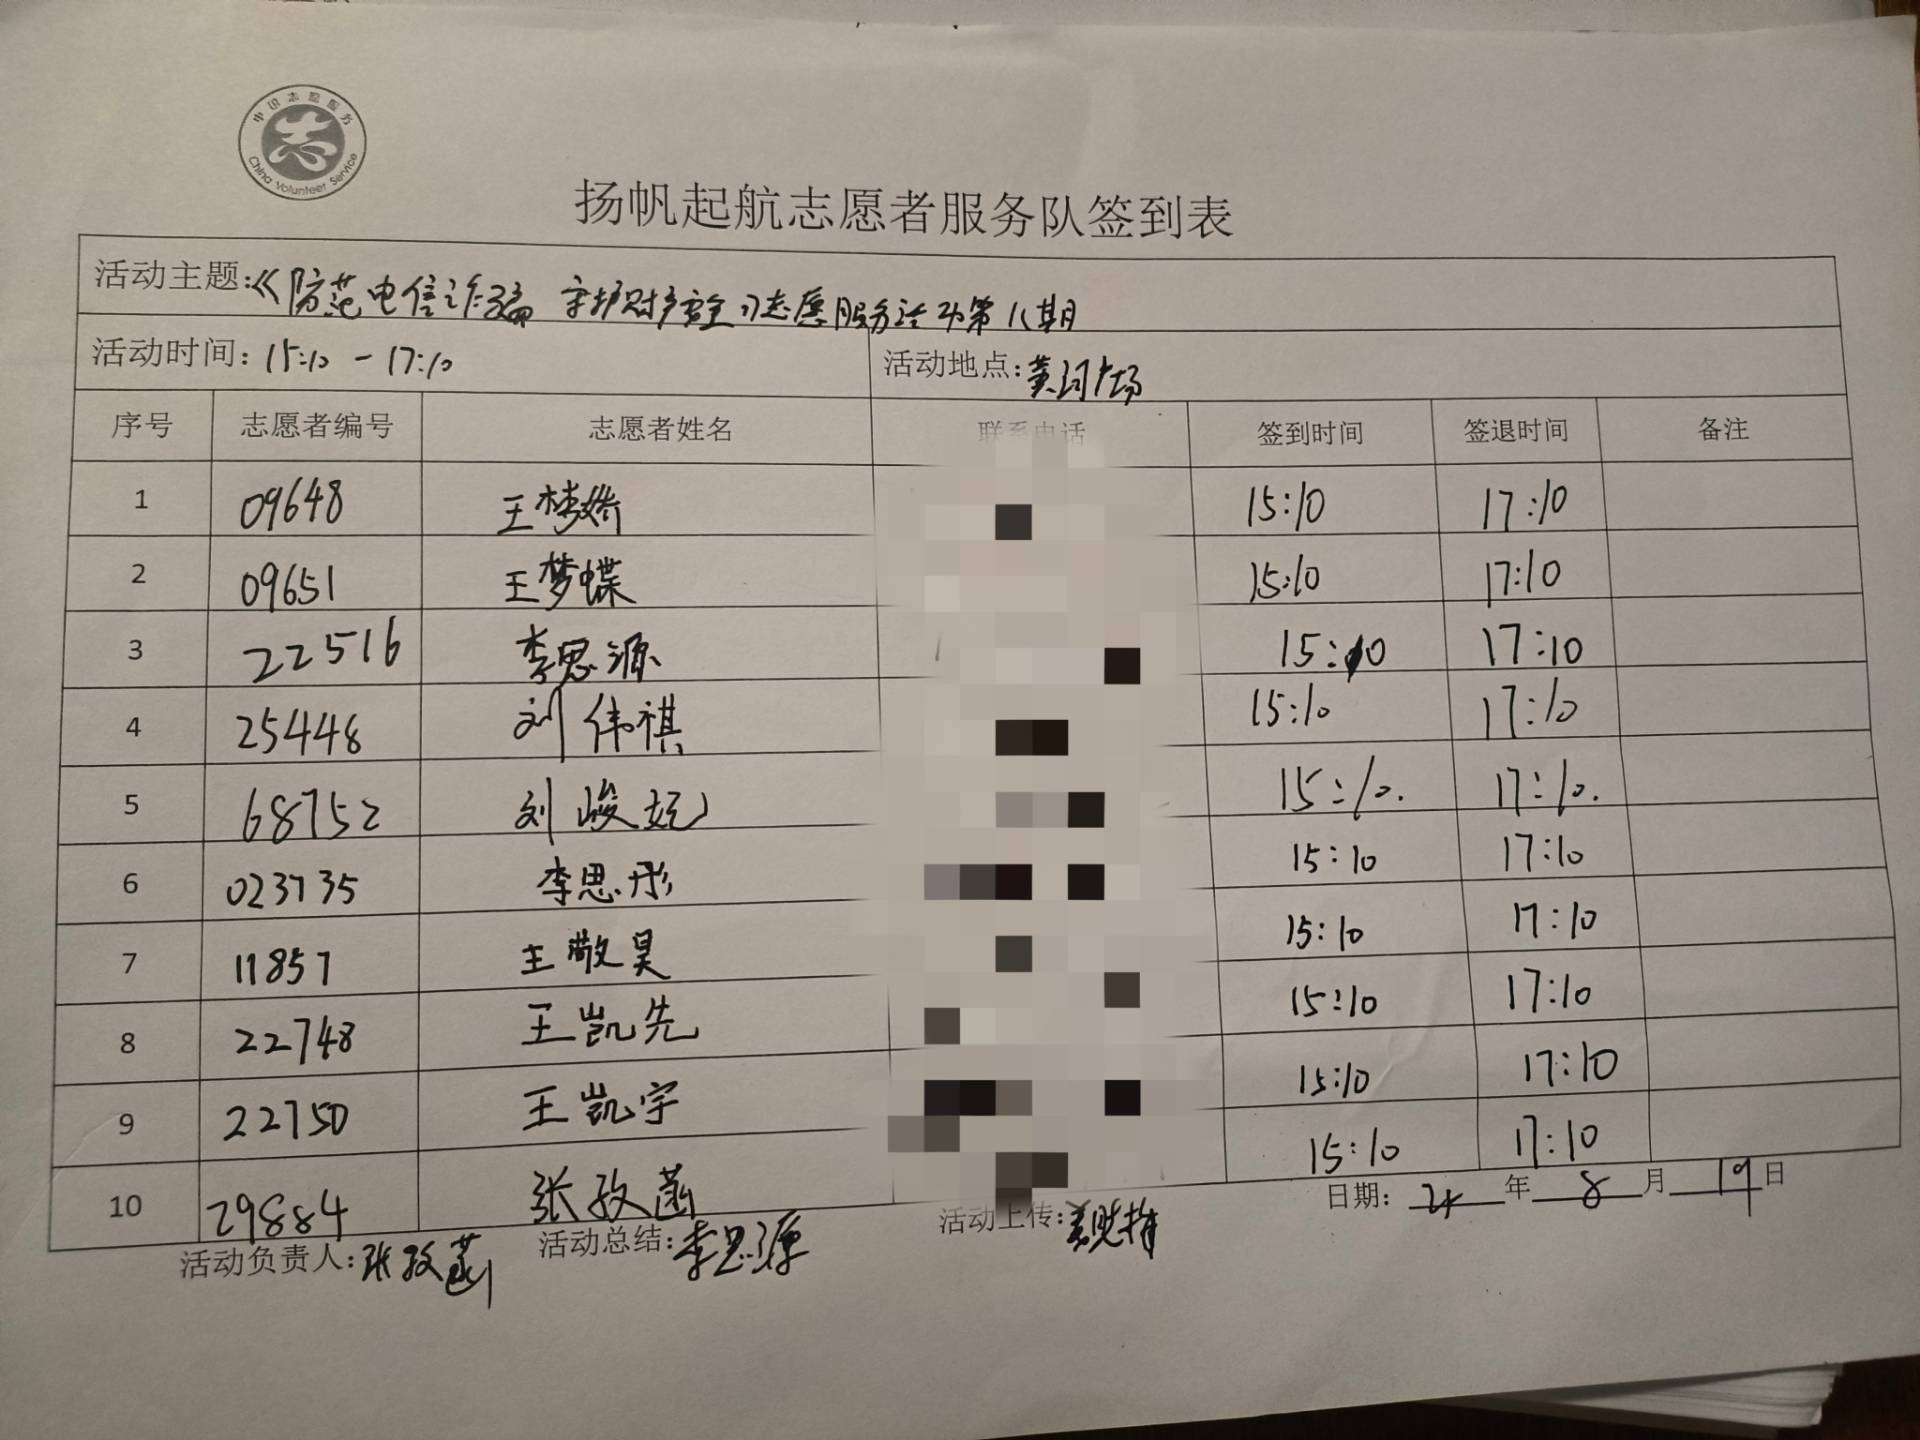 中国志愿服务
China Volunteer Service
扬帆起航志愿者服务队签到表
活动主题:《防范电信诈骗 守护财产安全》志愿服务活动第八期
活动时间: 15:10 - 17:10 活动地点: 黄河广场
序号 志愿者编号 志愿者姓名 联系电话 签到时间 签退时间 备注
1 09648 王梦娇 15:10 17:10
2 09651 王梦蝶 15:10 17:10
3 22516 李思源 15:10 17:10
4 25448 刘伟祺 15:10 17:10
5 68752 刘峻妧 15:10. 17:10.
6 023735 李思彤 15:10 17:10
7 11857 王敬昊 15:10 17:10
8 22748 王凯先 15:10 17:10
9 22750 王凯宇 15:10 17:10
10 29884 张孜菡 15:10 17:10
活动负责人: 张孜菡 活动总结: 李思源 活动上传: 日期: 24 年 8 月 19 日